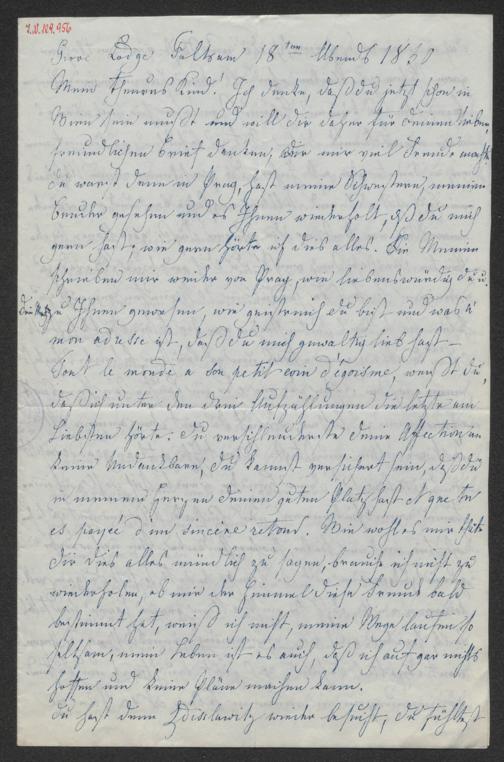 I.N. 109.956
Grove Lodge Feltham 18ten Abends 1850
Mein theures Kind! Ich denke, daß du jetzt schon in
Wien sein mußt und will dir daher für deinen lieben,
freundlichen Brief danken, der mir viel Freude machte
du warst denn in Prag, hast meine Schwestern, meinen
Bruder gesehen und es Ihnen wiederholt, daß du mich
gern hast; wie gern hörte ich dies alles. Die Meinen
schrieben mir wieder von Prag, wie liebenswürdig du
zu Ihnen gewesen, wie geistreich du bist und was à
mon adresse ist, daß du mich gewaltig lieb hast –
Tout le monde a son petit coin d'égoisme, weißt du,
daß ich unter den drei Aufzählungen die letzte am
Liebsten hörte. du verschleuderst deine Affection an
keine Undankbare, du kannst versichert sein, daß du
in meinem Herzen deinen guten Platz hast et que tu
es payée d'un sincère retour. Wie wohl es mir thäte
dir dies alles mündlich zu sagen, brauche ich nicht zu
wiederholen, ob mir der Himmel diese Freude bald
bestimmt hat, weiß ich nicht, meine Wege laufen so
seltsam, mein Leben ist es auch, daß ich auf gar nichts
hoffen und keine Pläne machen kann.
du hast denn Zdislawitz wieder besucht, du fühltest